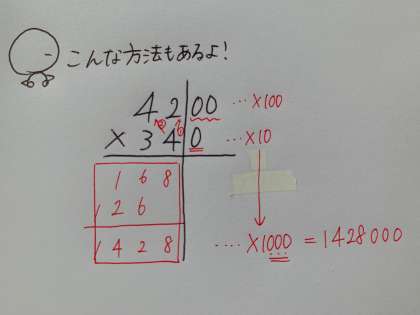 こんな方法もあるよ!
4200 …×100
×340 …×10
168
126
1428 ....×1000 = 1428000